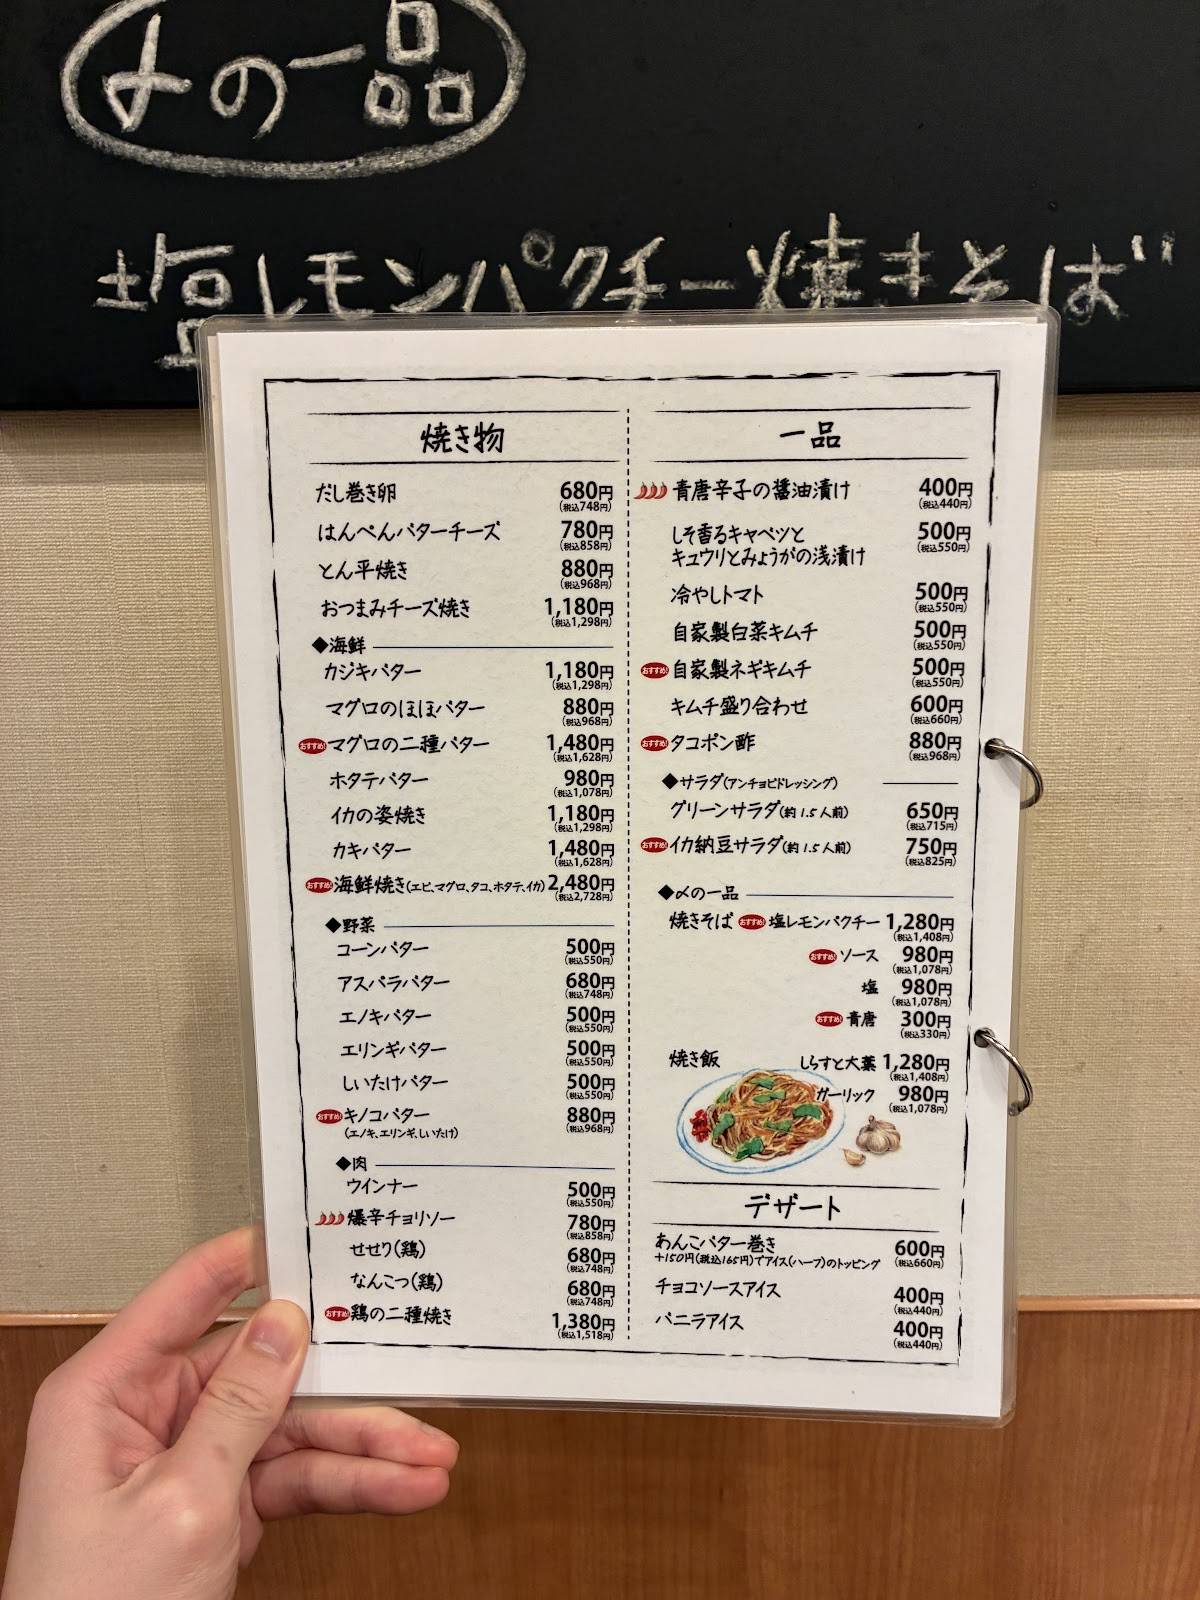 〆の一品
塩レモンパクチー焼きそば
焼き物
だし巻き卵 680円
(税込748円)
はんぺんバターチーズ 780円
(税込858円)
とん平焼き 880円
(税込968円)
おつまみチーズ焼き 1,180円
(税込1,298円)
◆海鮮
カジキバター 1,180円
(税込1,298円)
マグロのほほバター 880円
(税込968円)
おすすめ! マグロの二種バター 1,480円
(税込1,628円)
ホタテバター 980円
(税込1,078円)
イカの姿焼き 1,180円
(税込1,298円)
カキバター 1,480円
(税込1,628円)
おすすめ! 海鮮焼き(エビ、マグロ、タコ、ホタテ、イカ) 2,480円
(税込2,728円)
◆野菜
コーンバター 500円
(税込550円)
アスパラバター 680円
(税込748円)
エノキバター 500円
(税込550円)
エリンギバター 500円
(税込550円)
しいたけバター 500円
(税込550円)
おすすめ! キノコバター 880円
(エノキ、エリンギ、しいたけ) (税込968円)
◆肉
ウインナー 500円
(税込550円)
爆辛チョリソー 780円
(税込858円)
せせり(鶏) 680円
(税込748円)
なんこつ(鶏) 680円
(税込748円)
おすすめ! 鶏の二種焼き 1,380円
(税込1,518円)
一品
青唐辛子の醤油漬け 400円
(税込440円)
しそ香るキャベツと 500円
キュウリとみょうがの浅漬け (税込550円)
冷やしトマト 500円
(税込550円)
自家製白菜キムチ 500円
(税込550円)
おすすめ! 自家製ネギキムチ 500円
(税込550円)
キムチ盛り合わせ 600円
(税込660円)
おすすめ! タコポン酢 880円
(税込968円)
◆サラダ(アンチョビドレッシング)
グリーンサラダ(約1.5人前) 650円
(税込715円)
おすすめ! イカ納豆サラダ(約1.5人前) 750円
(税込825円)
◆〆の一品
焼きそば おすすめ! 塩レモンパクチー 1,280円
(税込1,408円)
おすすめ! ソース 980円
(税込1,078円)
塩 980円
(税込1,078円)
おすすめ! 青唐 300円
(税込330円)
焼き飯 しらすと大葉 1,280円
(税込1,408円)
ガーリック 980円
(税込1,078円)
デザート
あんこバター巻き 600円
+150円(税込165円)でアイス(ハーフ)のトッピング (税込660円)
チョコソースアイス 400円
(税込440円)
バニラアイス 400円
(税込440円)